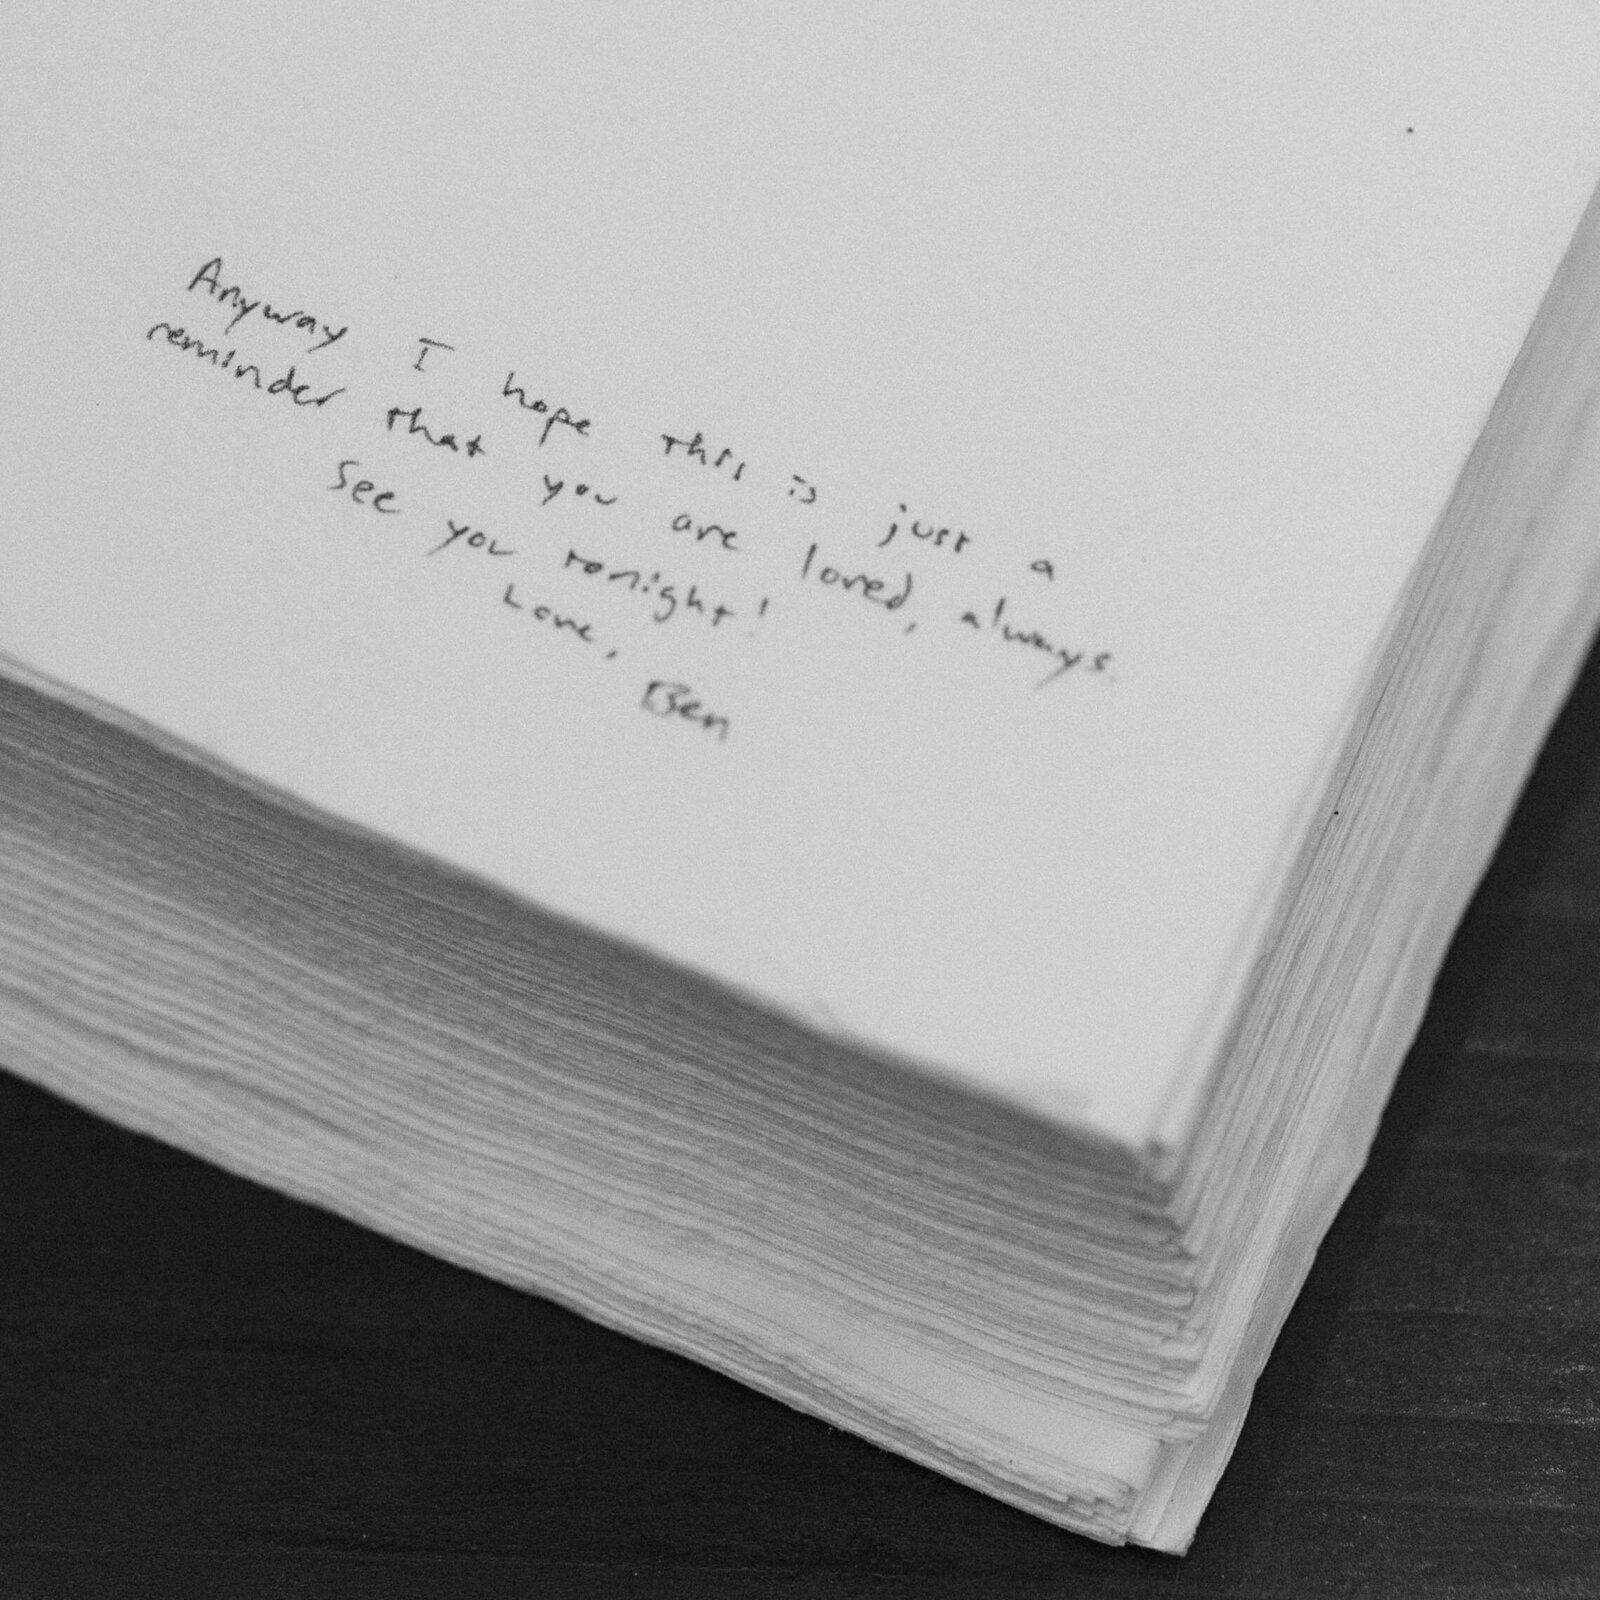 Anyway I hope this is just a
reminder that you are loved, always.
See you tonight!
Love,
Ben